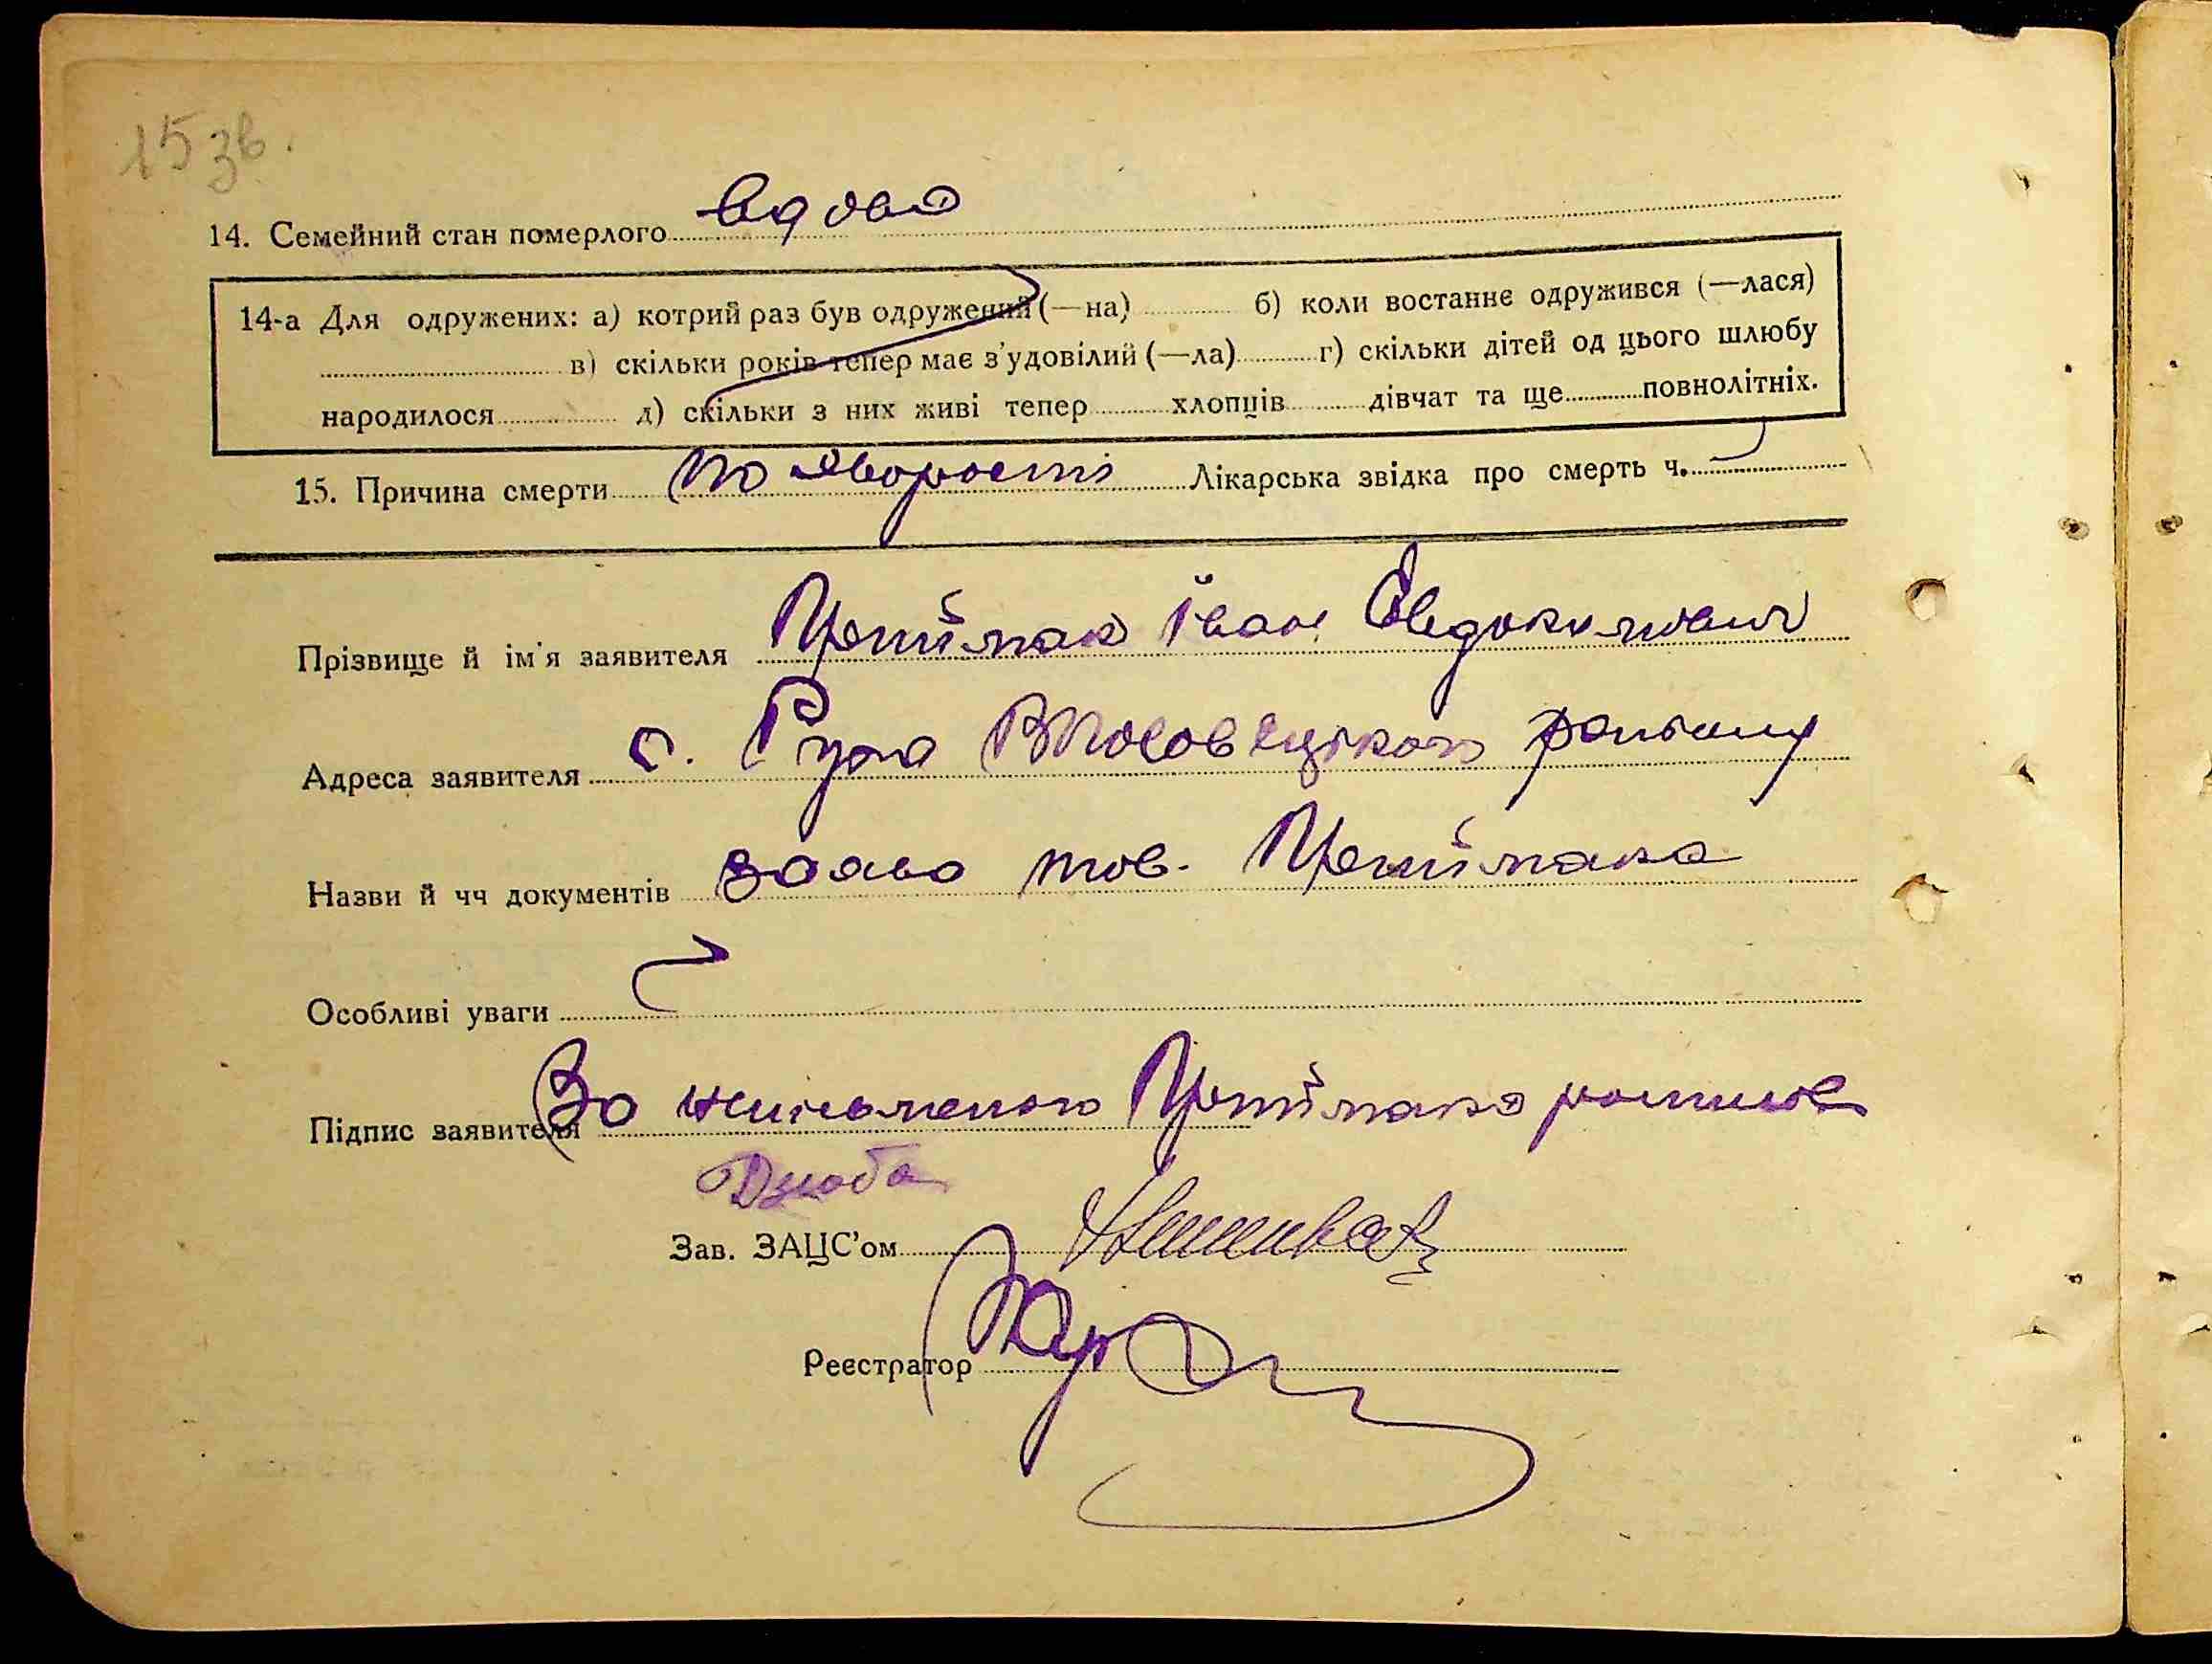 15 зв.
14. Семейний стан померлого вдова
14-а Для одружених: а) котрий раз був одружений (—на) б) коли востаннє одружився (—лася)
в) скільки років тепер має з'удовілий (—ла) г) скільки дітей од цього шлюбу
народилося д) скільки з них живі тепер хлопців дівчат та ще повнолітніх.
15. Причина смерти по хворості Лікарська звідка про смерть ч.
Прізвище й ім'я заявителя Іван Євдокимович
Адреса заявителя с. району
Назви й чч документів заява тов.
Особливі уваги
Підпис заявителя За
Дзюба
Зав. ЗАЦС'ом
Реєстратор